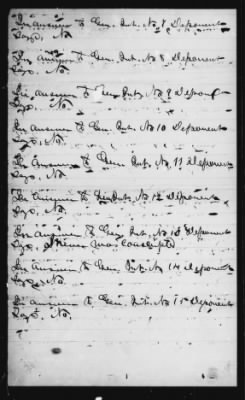 In answer to Gen. Int. No 7 Deponent
Says, No.
In Answer to Gen. Int. No 8 Deponent
Says. No.
In Answer to Gen Int. No 9 Deponent
Says. No.
In Answer to Gen. Int. No 10 Deponent
Says. No.
In Answer to Gen. Int. No 11 Deponent
Says. No.
In Answer to Gen Int. No 12 Deponent
Says. No.
In Answer to Gen. Int. No 13 Deponent
Says. I never was Conscripted
In Answer to Gen. Int. No 14 Deponent
Says. No.
In answer to Gen. Int. No 15 Deponent
Says. No.